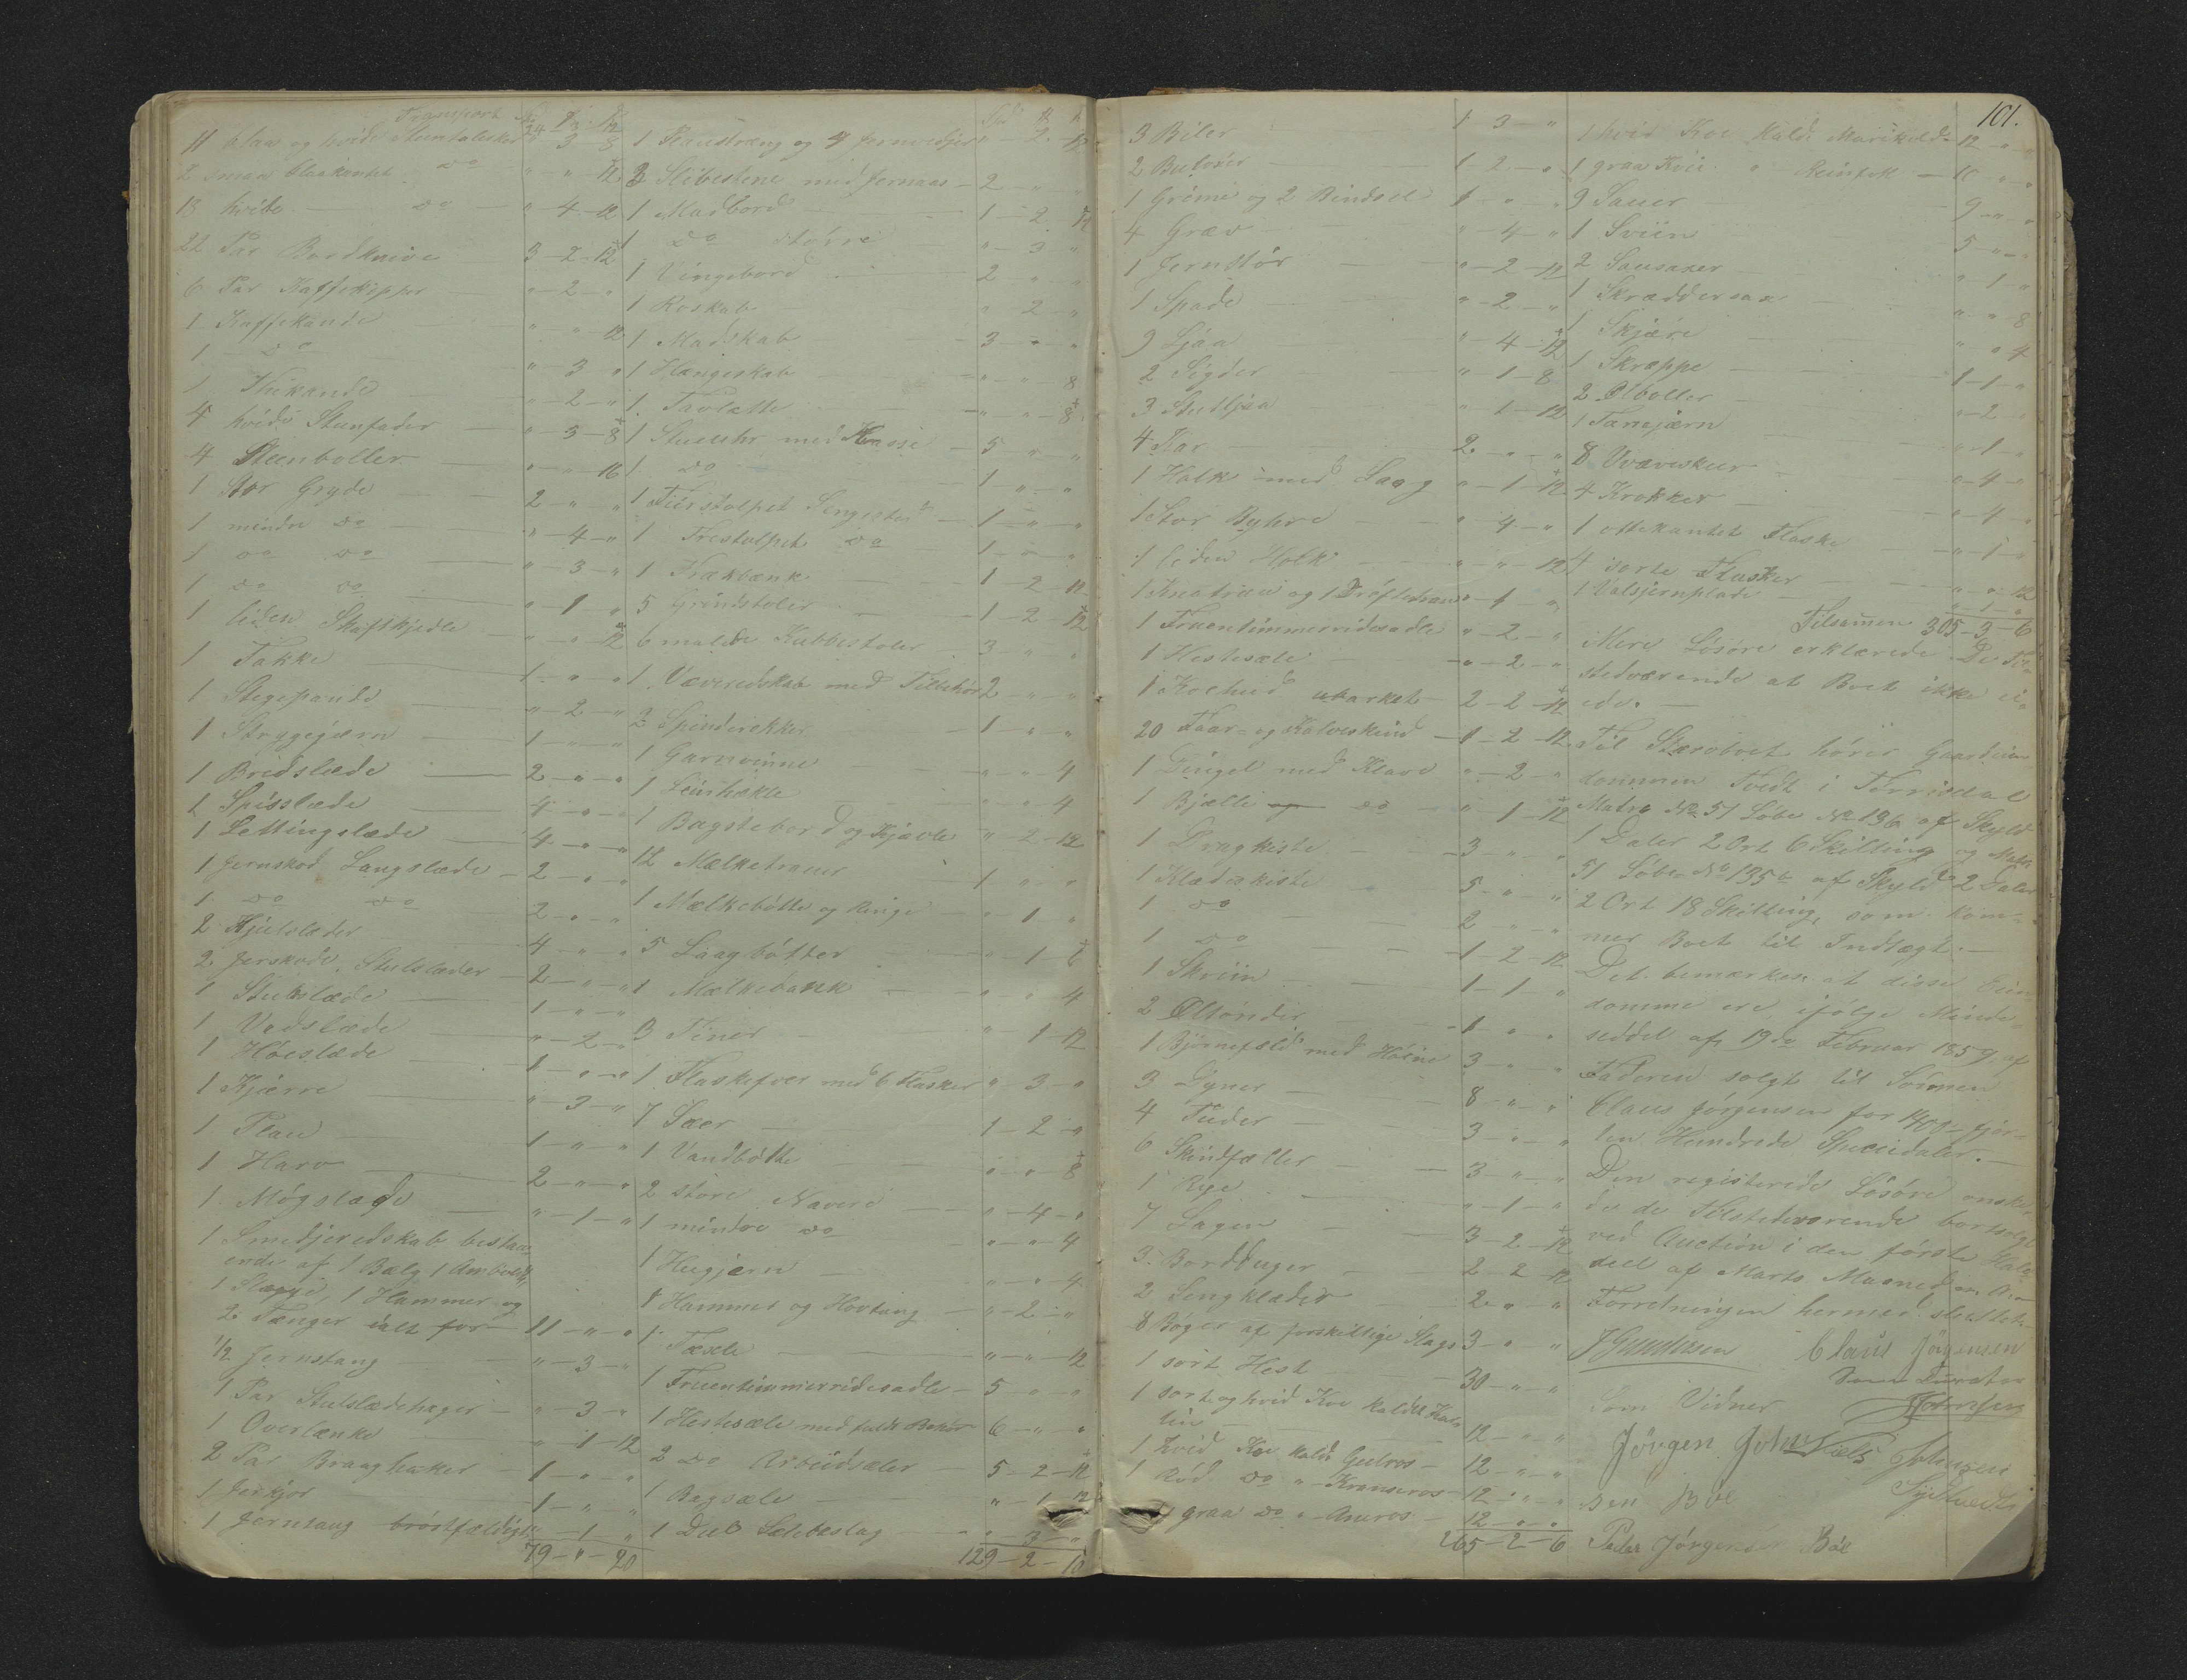 Transport
11 blaa og hvide Steentalerker " 3 - 8
2 smaa blaakantet do " - " - 12
13 hvide do " - 4 - 12
22 Par Bordknive 3 - 2 - 12
6 Par Kaffekopper " - 2 - "
1 Kaffekande " - " - 12
1 do " - 3 "
1 Theekande " - 2 - "
4 hvide Steenfader " - 3 - 8
4 Steenboller " - " - 16
1 Stor Gryde 2 - " - "
1 mindre do " - 4 - "
1 do do " - 3 - "
1 do do " - 1 - "
1 liden Skaftkjedle " - " - 12
1 Takke 1 - " - "
1 Stegepande " - 2 - "
1 Strygejærn 1 - " - "
1 Bredslæde 2 - " - "
1 Spisslæde 4 - " - "
1 Lettingslæde 4 - " - "
1 Jernskod Langslæde 2 - " - "
1 do do 2 - " - "
2 Hjulslæder 4 - " - "
2 Jerskode Stutslæder 2 - " - "
1 Stutslæde 1 - " - "
1 Vedslæde " - 2 - "
1 Høeslæde 1 - " - "
1 Kjærre " - 3 - "
1 Plau 1 - " - "
1 Harv 2 - " - "
1 Møgslæde " - 1 - "
1 Smedjeredskab bestaa-
ende af 1 Bælg 1 Ambolt,
1 Slægge, 1 Hammer og
2 Tænger ialt for 11 - " - "
1/2 Jernstang " - 3 - "
1 Par Stutslædehager " - 3 - "
1 Overlænke " - 1 - 12
2 Par Braaghaker 1 - " - "
1 Jerkjør 1 - " - "
1 Jerntaug brøstfældigt " - 1 - "
79 - " - 20
1 Haandtræng og 4 Jernvedjer " - 2 - 12
3 Slibestene med Jernaas 2 - " - "
1 Madbord 1 - 2 - 12
1 do større " - 3 "
1 Vingebord 2 - " - "
1 Roskab " 2 - "
1 Madskab 3 - " - "
1 Hængeskab " - " - 8
1 Tavlette " - " - 8
1 Stueuhr med Kasse 5 - " - "
1 do 1 - " - "
1 Fiirstolpet Sengested 1 - " - "
1 Trestolpet do 1 - " - "
1 Træbænk 1 - 2 - 12
5 Grindstoler 1 - 2 - 12
6 malede Kubbestoler 3 - " - "
1 Væveredskab med Tilbehør 2 - " - "
3 Spinderokker 1 - " - "
1 Garnvinne " - " - 4
1 Liinhekle " - " - 4
1 Bagstebord og Kjævle " - 2 - 12
12 Mælketrauer 1 " - "
1 Mælkebøtte og Ringe " - 1 "
5 Laagbøtter " - 1 - 8
1 Mælkebænk " - " 4
3 Tiner " - 1 - 12
1 Flaskefoer med 6 Flasker " - 3 - "
7 Sær 1 - 2 - "
1 Vandbøtte " - " - 8
2 store Navere " - 4 - "
1 mindre do " - " - 4
1 Hugjærn " - " - 4
1 Hammer og Hovtang " - 2 - "
1 Tæxle " - " - 12
1 Fruentimmerridesadle 5 - " - "
1 Hestesæle med fuldt Behør 6 - " - "
2 do Arbeidsæler 5 - 2 - 12
1 Bagsæle " - 1 - 12
1 Deel Sælebeslag " - 3 - "
129 - 2 - 10
101.
3 Biler 1 3 "
2 Buløxer 1 - 2 - "
1 Grime og 2 Bindsel 1 - " - "
4 Græv " - 4 - "
1 Jernstør " - 2 - 12
1 Spade " - 2 - "
9 Ljaa " - 4 - 12
2 Sigder " - 1 - 8
3 Stutljaa " - 1 - 12
4 Kar 2 - " - "
1 Holk med Laag " - 1 - 12
1 Stor Byttere " - 4 - "
1 liden Holk " - " - 12
1 Knatrau og 1 Drøftetrau " - 1 - "
1 Fruentimmerridesadle " - 2 - "
1 Hestesæle " - 2 - "
1 Koehud ubarket 2 - 2 - 12
20 Faar- og Kalveskind 1 - 2 - 12
1 Dingel med Klave " - 2 - "
1 Bjælle do " - 1 - 12
1 Dragkiste 3 - " - "
1 Klædeskiste 5 - " - "
1 do 2 - " - "
1 do 1 - 2 - 12
1 Skriin 1 - 1 - "
2 Øltønder 1 - " - "
1 Bjørnefæld med Høine 3 - " - "
3 Dyner 8 - " - "
4 Puder 3 - " - "
6 Skindfæller 3 - " - "
1 Rye " - 1 - "
7 Lagen 3 - 2 - 12
3 Bordduger 2 - 2 - 12
2 Sengklæder 2 - " - "
8 Bøger af forskillige Slags 3 - " - "
1 sort Hest 30 - " - "
1 sort og hvid Koe kaldet Kal-
lin 12 - " - "
1 hvid Koe kaldt Gulros 12 - " - "
1 Rød do " Krunsros 12 - " - "
1 graa do " Aaros 12 - " - "
265 - 2 - 6
1 hvid Koe kaldt Marikold 12 - " - "
1 graa Kvie " Reinfek 10 - " - "
9 Sauer 9 - " - "
1 Sviin 5 - " - "
2 Sausaxer " 1 "
1 Skræddersax " - " 8
1 Skjære " - " 4
1 Skræppe 1 - 1 - "
2 Ølboller " - 2 "
1 Tannjærn " - 1 - "
8 Væveskeer " - 4 - "
4 Krokker " - 4 - "
1 ottekantet Flaske " - 1 - "
4 sorte Flasker " - " - 12
1 Valsjernplade " - 1 - "
Tilsamen 305 - 3 - 6
Mere Løsøre erklærede De Til-
stedværende at Boet ikke ei-
ede. —
Til Stærvboet hører Gaardeien-
dommen Tvedt i Torrisdal
Matr. No 51 Løbe No 136 af Skyld
1 Daler 2 Ort 6 Skilling og Matr.
51 Løbe No 135b af Skyld 2 Daler
2 Ort 18 Skilling, som kom-
mer Boet til Indtægt. —
Det bemærkes at disse Eien-
domme ere ifølge Minde-
seddel af 19de Februar 1859 af
Faderen solgt til Sønnen
Claus Jørgensen for 1400 fjor-
ten Hundrede Speciedaler. —
Den registerede Løsøre ønske-
de de Tilstedeværende bortsolgt
ved Auction i den første Halv-
deel af Marts Maaned
Forretningen hermed sluttet.
J Gundersen Claus Jørgensen
Som Vidner
Jørgen Johnsen Bøe
Niels Johnsen
Peder Jørgensen Bøe